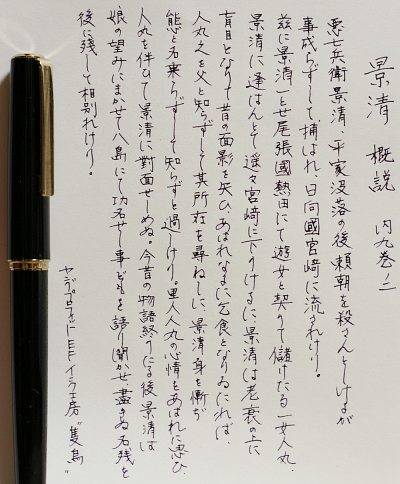 景清 概説 内九巻ノ二
悪七兵衛景清、平家没落の後頼朝を殺さんとしけるが
事成らずして捕はれ、日向國宮崎に流されけり。
茲に景清一とせ尾張國熱田にて遊女と契りて儲けたる一女人丸、
景清に逢はんとて遙々宮崎に下りけるに、景清は老衰の上に
盲目となりて昔の面影を失ひ、あはれなるさまに乞食となりゐたれば、
人丸之を父と知らずして其所在を尋ねしに、景清身を慚ぢ
態と名乗らずして知らずと過しけり。里人人丸の心情をあはれに思ひ、
人丸を伴ひて景清に對面せしめぬ。今昔の物語終りたる後景清は
娘の望みにまかせて八島にて功名せし事どもを語り聞かせ、盡きぬ名残を
後に残して相別れけり。
EF イラ工房 “隻鳥”